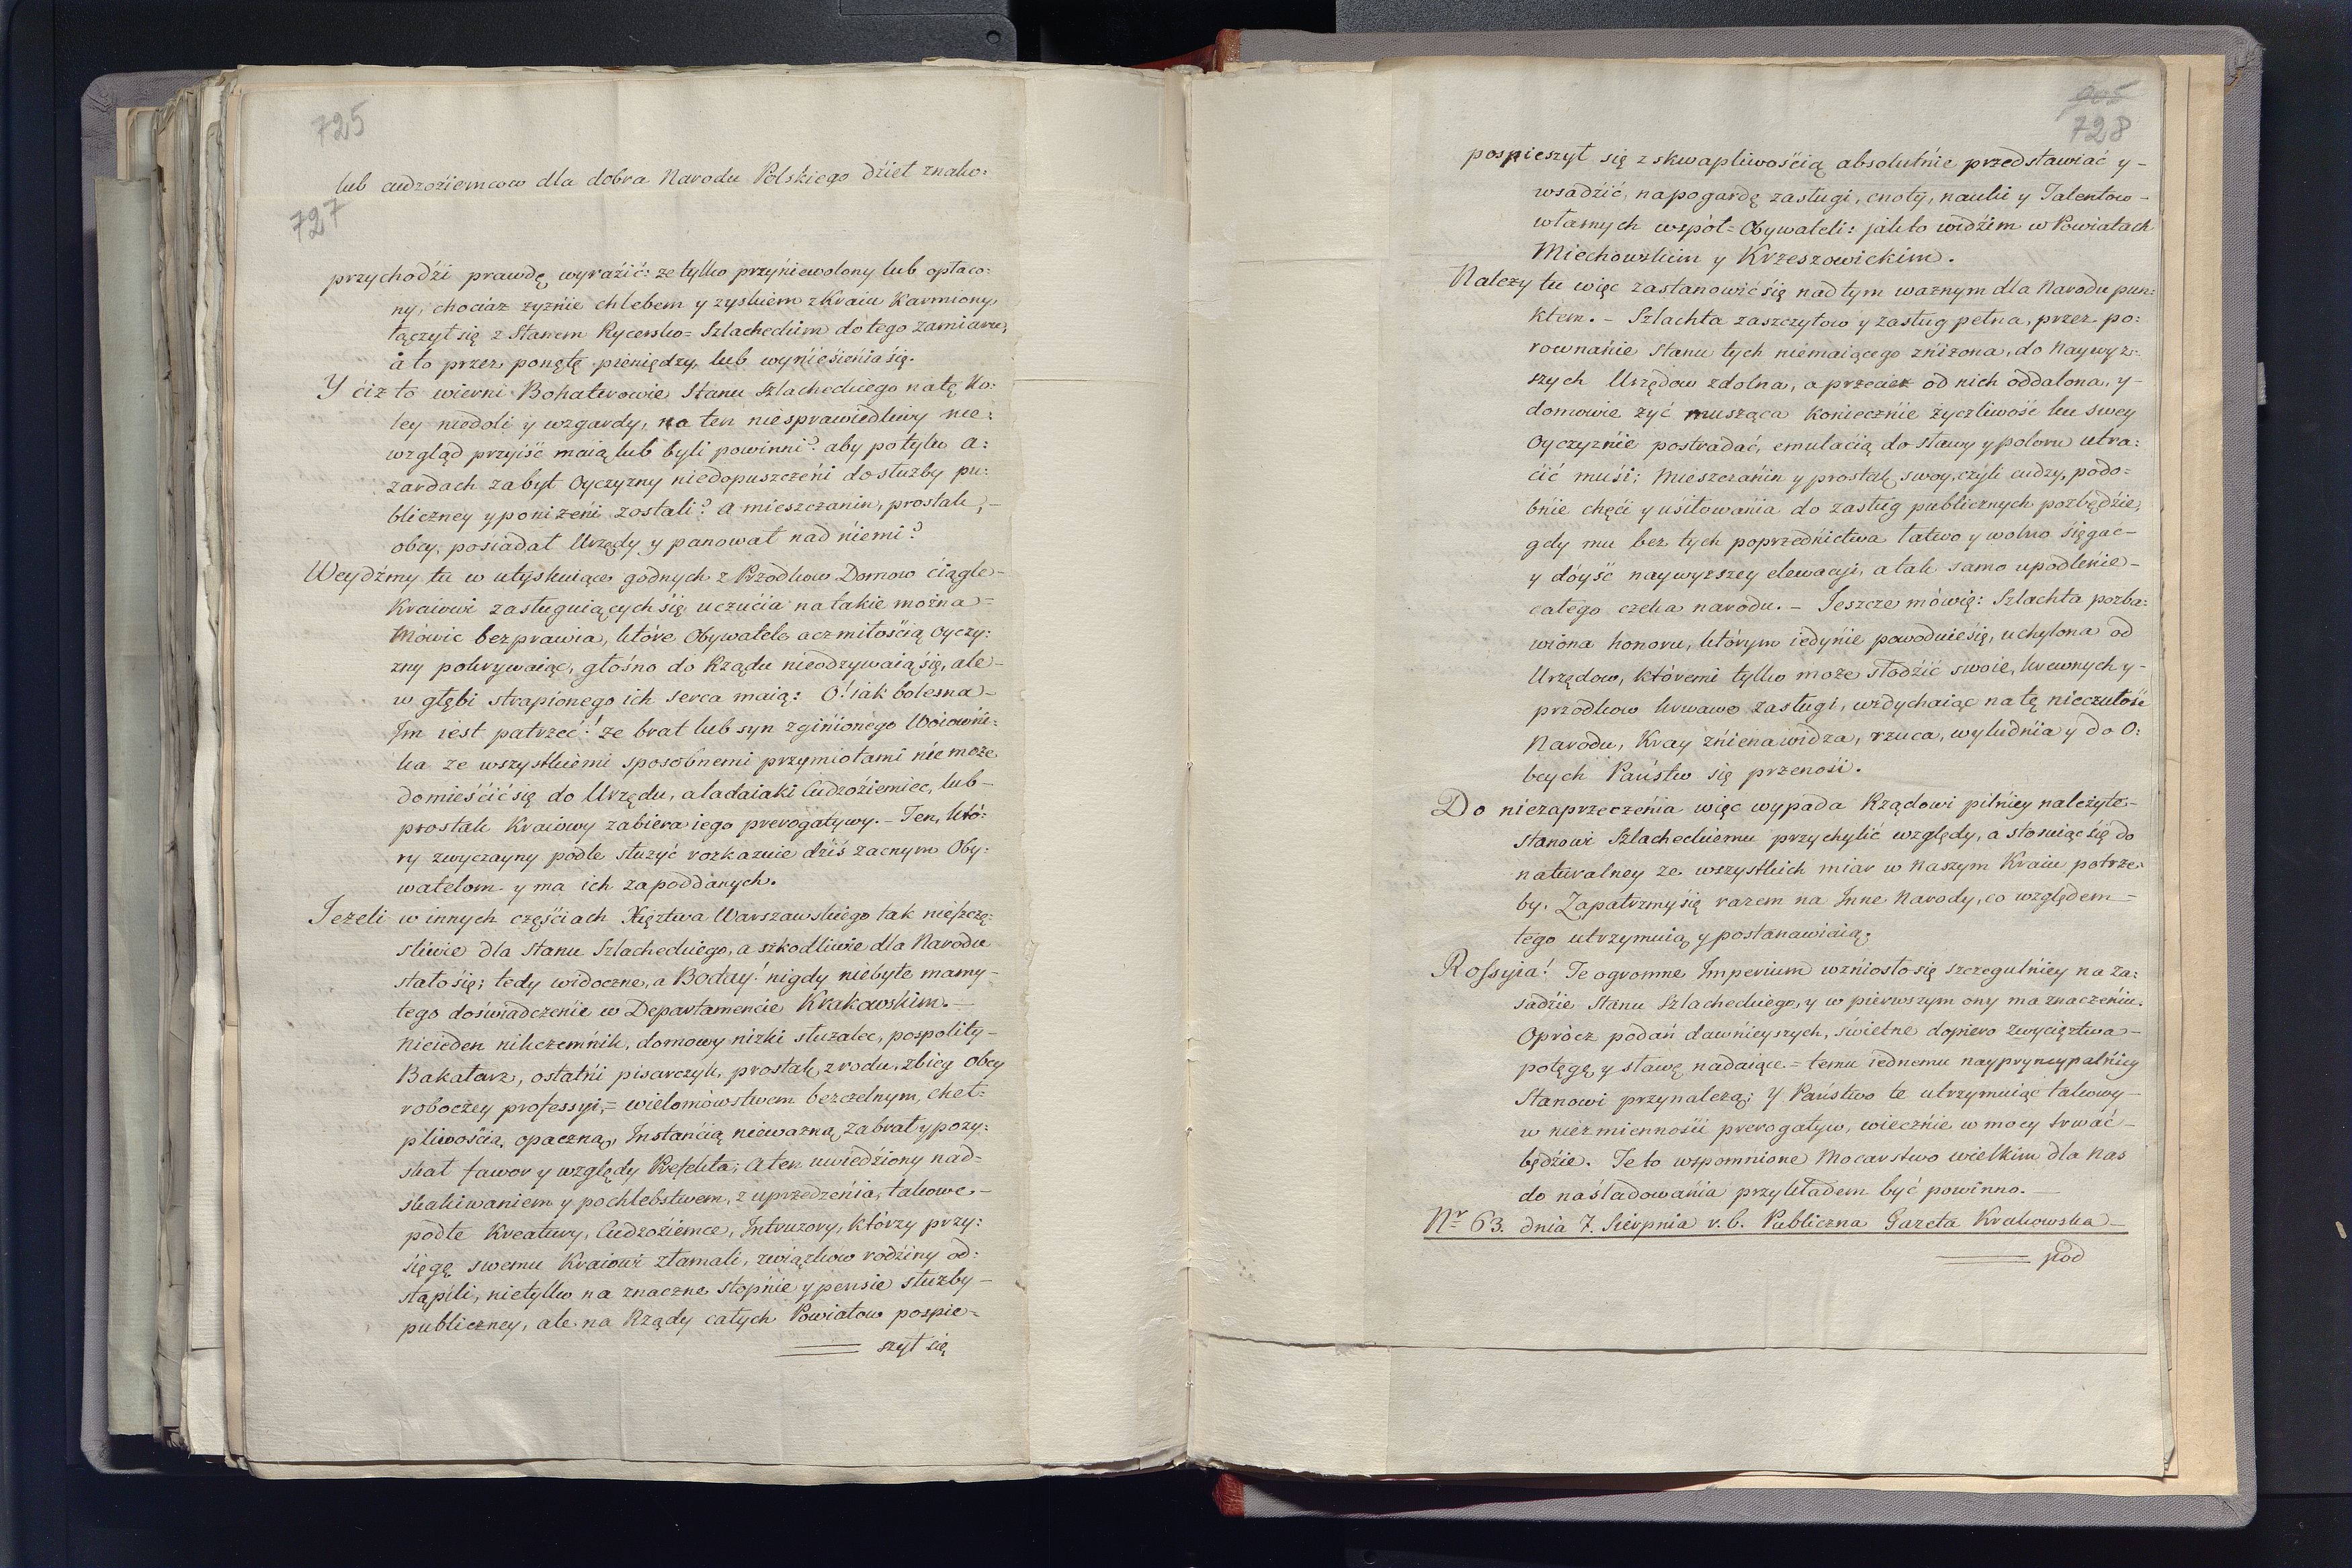 725
lub cudzoźiemcow dla dobra Narodu Polskiego dźieł znako:
727
przychodźi prawdę wyraźić: ze tylko przyńiewolony lub opłaco:
ny, chociaz zyznie chlebem y zyskiem z Kraiu Karmiony,
łączył się z Stanem Rycersko=Szlacheckim do tego zamiaru,
a to przez ponętę pieniędzy, lub wynieśienia się.
Y ciz to wierni Bohaterowie Stanu Szlacheckiego na tę Ko:
ley niedoli y wzgardy, na ten niesprawiedliwy nie:
wzgląd przyiść maią lub byli powinni? aby po tylu a:
zardach za byt Oyczyzny niedopuszczeńi do służby pu:
bliczney y poniżeni zostali? a mieszczanin, prostak, –
obcy, posiadał Urzędy y panował nad niemi?
Weydźmy tu w utyskuiące godnych z Przodkow Domow ciągle –
Kraiowi zasługuiących się uczućia na takie mozna =
Mówic bezprawia, które Obywatele acz miłośćią Oyczy:
zny pokrywaiąc, głośno do Rządu nieodzywaią się, ale –
w głębi strapionego ich serca maią: O! iak bolesna –
Im iest patrzeć! ze brat lub syn zginionego Woiowni:
ka ze wszystkiemi sposobnemi przymiotami nie moze
domieśćić się do Urzędu, a ladaiaki Cudzoźiemiec, lub –
prostak Kraiowy zabiera iego prerogatywy. – Ten, któ:
ry zwyczayny podle służyć rozkazuie dziś zacnym Oby:
watelom y ma ich za poddanych.
Jezeli w innych częśćiach Xięztwa Warszawskiego tak nieszczę:
sliwie dla Stanu Szlacheckiego, a szkodliwie dla Narodu
stało się; tedy widoczne, a Boday! nigdy niebyłe mamy –
tego doświadczenie w Departamencie Krakowskim. —
Nieieden nikczemnik, domowy nizki służalec, pospolity –
Bakałarz, ostatni pisarczyk, prostak z rodu, zbieg obcy
roboczey professyi, = wielomówstwem bezczelnym, cheł:
pliwośćią opaczną, Instancią nieważną, zabrał y pozy:
skał fawor y względy Prefekta; a ten uwiedziony nad =
skakiwaniem y pochlebstwem, z uprzedzenia, takowe. –
podłe Kreatury, Cudzoźiemce, Intruzory, którzy przy:
sięgę swemu Kraiowi złamali, związkow rodziny od:
stąpili, nietylko na znaczne stopnie y pensie służby –
publiczney, ale na Rządy całych Powiatow pospie =
szył się
905
728
pospieszył się z skwapliwośćią absolutnie przedstawiać y –
wsadźić, na pogardę zasługi, cnoty, nauki y Talentow –
własnych współ=Obywateli: jakto widźim w Powiatach
Miechowskim y Krzeszowickim.
Nalezy tu więc zastanowić się nad tym waznym dla Narodu pun:
ktem. – Szlachta zaszczytow y zasług pełna, przez po:
rownanie Stanu tych niemaiącego znizona, do Naywyz:
szych Urzędow zdolna, a przeciez od nich oddalona, y –
domowie zyć musząca Koniecznie życzliwość ku swey
Oyczyznie postradać, emulacią do sławy y poloru utra:
cić muśi; Mieszczanin y prostak, swoy, czyli cudzy, podo =
bnie chęći y usiłowania do zasług publicznych pozbędzie,
gdy mu bez tych poprzednictwa łatwo y wolno sięgac –
y dóyść naywyzszey elewacyi, a tak samo upodlenie –
całego czeka narodu. – Jeszcze mówię: Szlachta pozba:
wiona honoru, którym iedynie powoduie się, uchylona od
Urzędow, któremi tylko może słodźić swoie, krewnych y –
przodkow krwawe zasługi, wzdychaiąc na tę nieczułość
Narodu, Kray znienawidza, rzuca, wyludnia y do O:
bcych Państw się przenośi.
Do niezaprzeczenia więc wypada Rządowi pilniey należyte –
Stanowi Szlacheckiemu przychylić względy, a stosuiąc się do
naturalney ze wszystkich miar w Naszym Kraiu potrze:
by. Zapatrzmy się razem na Inne Narody, co względem =
tego utrzymuią y postanawiaią;
Rossyia! Te ogromne Imperium wzniosło się szczegulniey na Za:
sadźie Stanu Szlacheckiego, y w pierwszym ony ma znaczeniu.
Oprócz podań dawnieyszych, świetne dopiero zwycięztwa –
potęgę y sławę nadaiące = temu iednemu naypryncypalniey
Stanowi przynalezą; Y Państwo te utrzymuiąc takowy –
w niezmiennośći prerogatyw, wiecznie w mocy trwać –
będzie. Te to wspomnione Mocarstwo wielkim dla Nas
do naśladowania przykładem być powinno. —
Nr 63. dnia 7. Sierpnia r. b. Publiczna Gazeta Krakowska –
pod